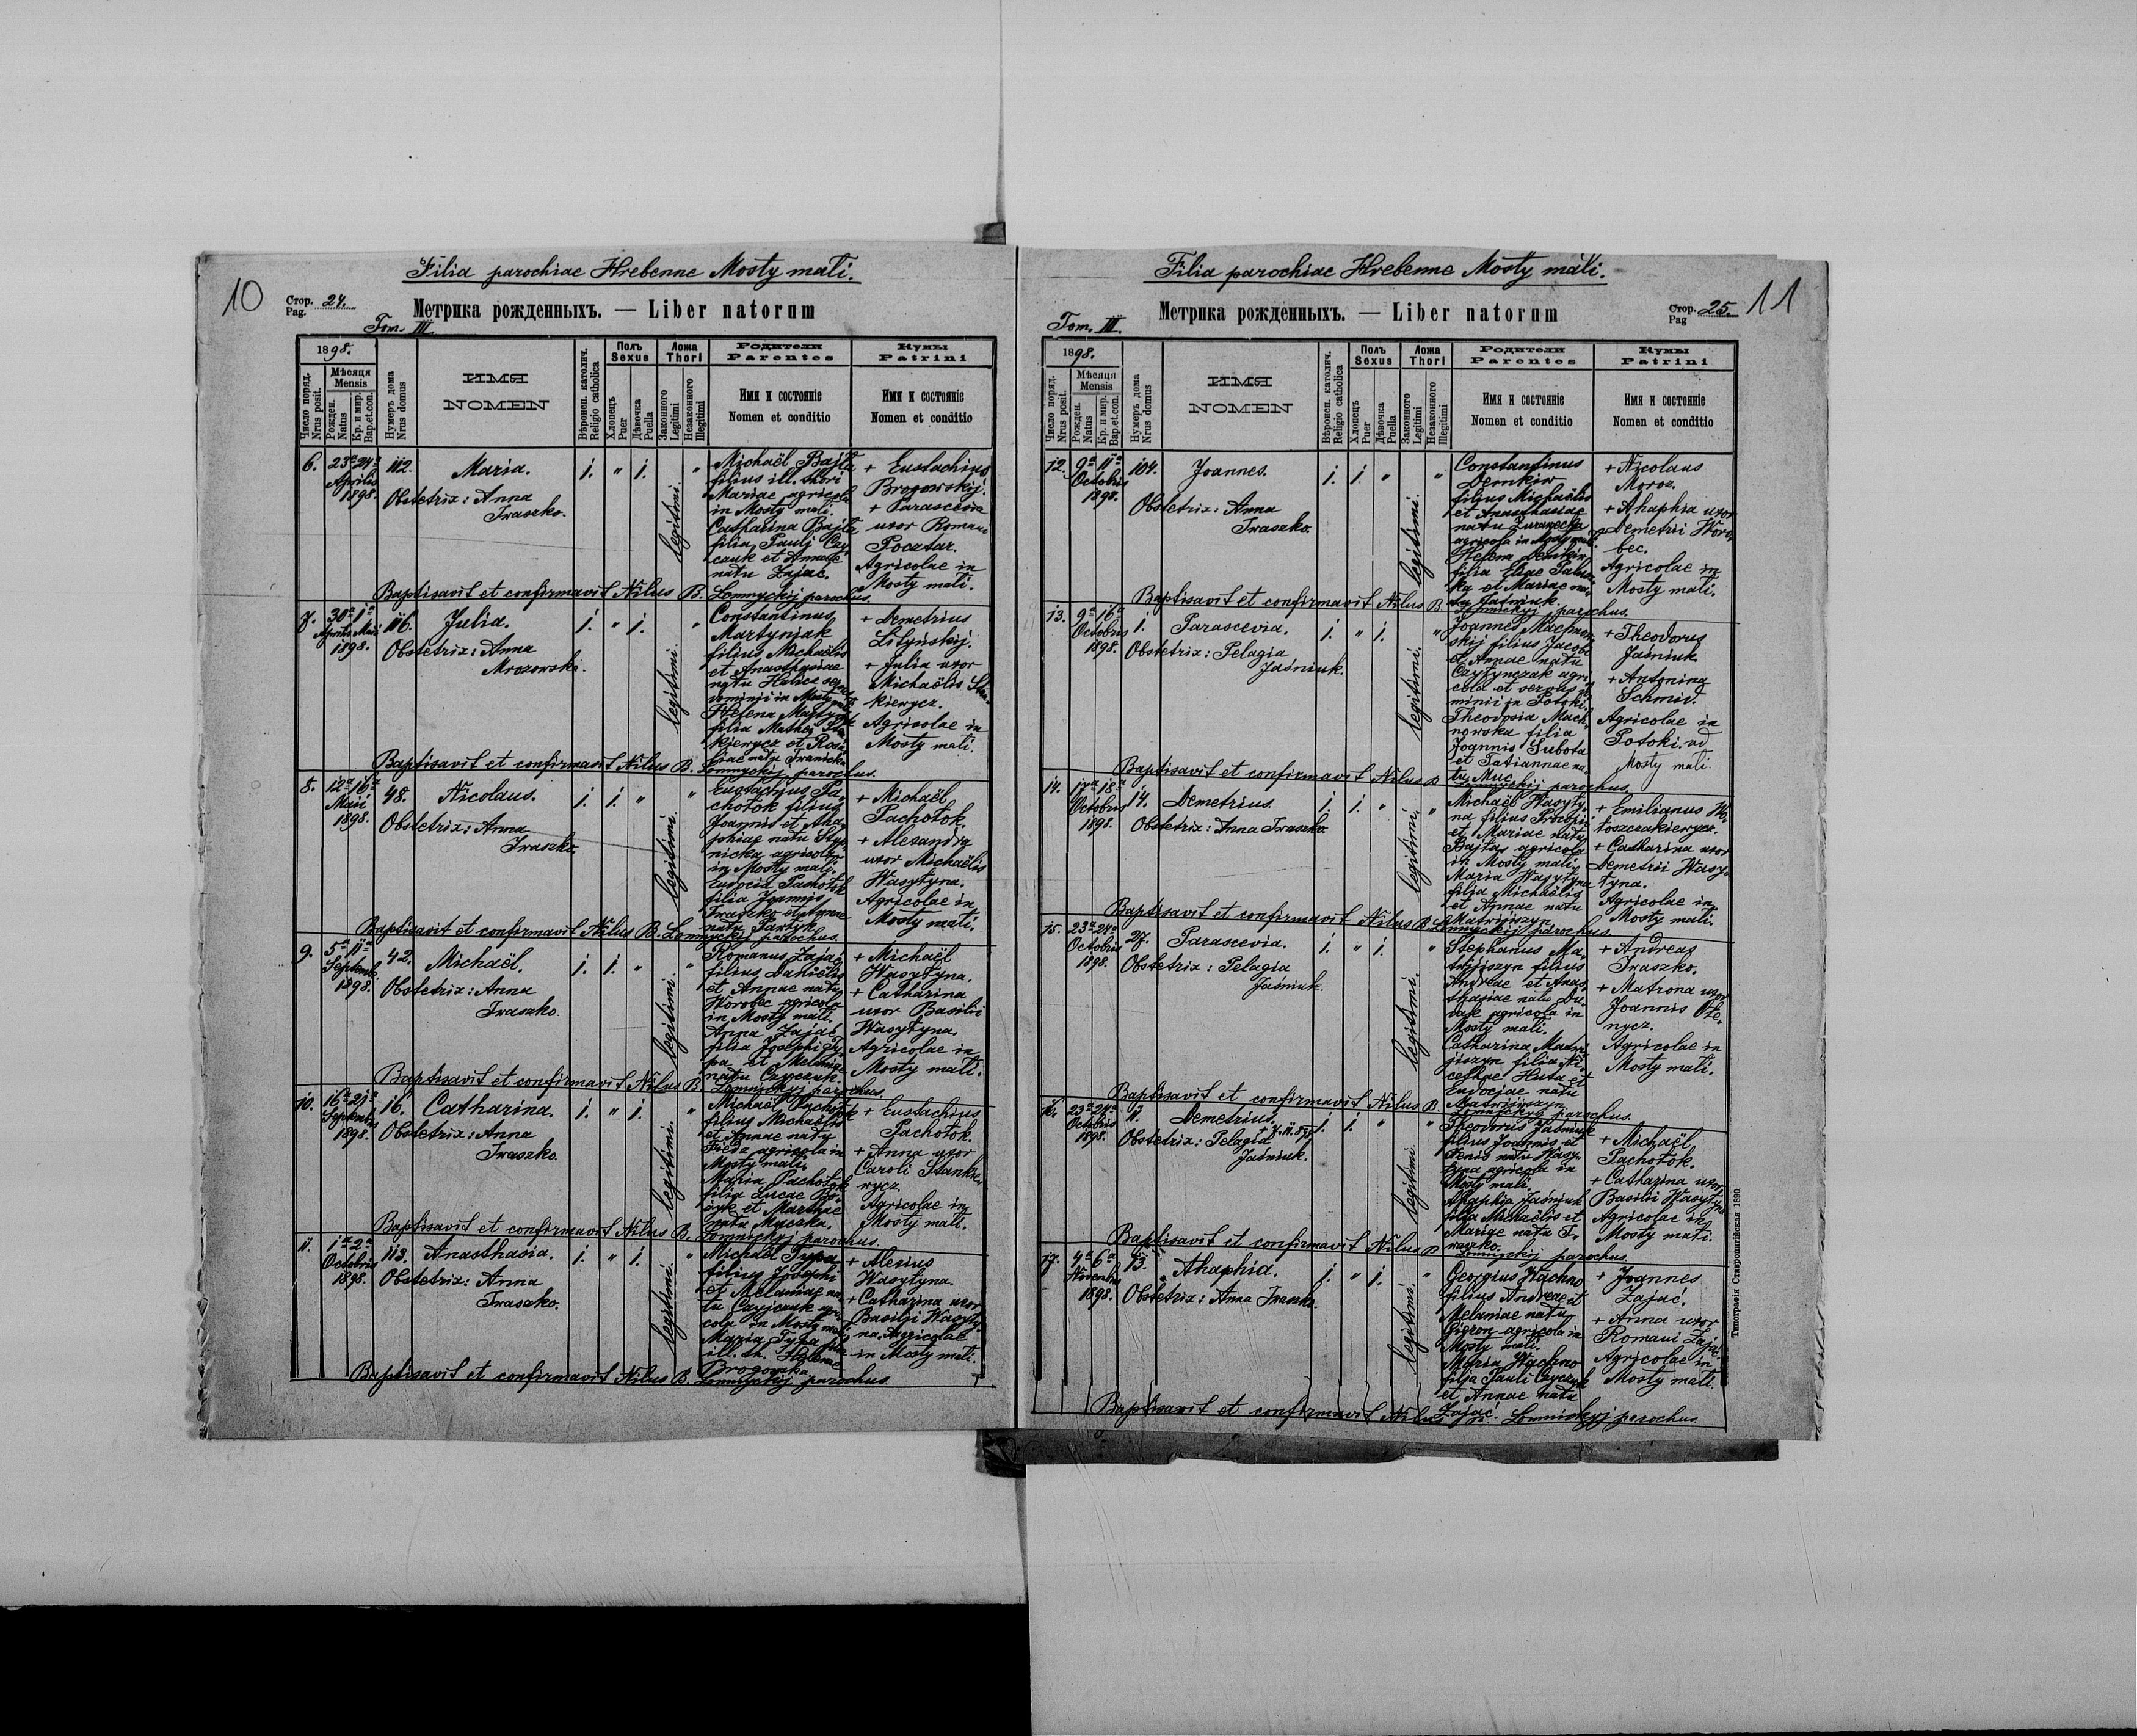 10
Filia parochiae Hrebenne Mosty mali.
Стор. 24.
Pag.
Метрика рожденныхъ. — Liber natorum
Tom. III.
1898.
Число поряд.
Nrus posit.
Мѣсяця
Mensis
Рожден.
Natus
Кр. и мир.
Bap.et.con.
Нумеръ дома
Nrus domus
ИМЯ
NOMEN
Вѣроисп. католич.
Religio catholica
Полъ
Sexus
Хлопецъ
Puer
Дѣвочка
Puella
Ложа
Thori
Законного
Legitimi
Незаконного
Illegitimi
Родители
Parentes
Имя и состоянiе
Nomen et conditio
Кумы
Patrini
Имя и состоянiе
Nomen et conditio
6. 23a 24a
Aprilis
1898.
112. Maria. 1. " 1. "
Obstetrix: Anna
Iwaszko.
legitimi.
Michaël Bajta
filius ill. thori
Mariae agricola
in Mosty mali.
Catharina Bajta
filia Pauli Czy-
czuk et Annae
natu Zajac.
+ Eustachius
+ Parascevia
uxor Romani
Pocztar.
Agricolae in
Mosty mali.
Baptisavit et confirmavit Nilus B. Lomnyckij parochus.
7. 30a 1a
Aprilis Maii
1898.
116. Julia. 1. " 1. "
Obstetrix: Anna
Mrozowska.
legitimi.
Constantinus
Martyniak
filius Michaëlis
et Anasthasiae
Helena
+ Demetrius
Lityńskij.
+ Julia uxor
Michaëlis Stan-
kiewycz.
Agricolae in
Mosty mali.
Baptisavit et confirmavit Nilus B. Lomnyckij parochus.
8. 12a 16a
Maii
1898.
48. Nicolaus. 1. 1. " "
Obstetrix: Anna
Iwaszko.
legitimi.
Eustachius Pa-
chotok filius
Joannis et Aha-
phiae natu
agricola
in Mosty mali.
Eudocia Pachotok
filia Joannis
Iwaszko et Annae
+ Michaël
Pachotok
+ Alexandra
uxor Michaëlis
Wasytyna.
Agricolae in
Mosty mali.
Baptisavit et confirmavit Nilus B. Lomnyckij parochus.
9. 5a 11a
Septemb.
1898.
42. Michaël. 1. 1. " "
Obstetrix: Anna
Iwaszko.
legitimi.
Romanus Zajac
filius Daniëlis
et Annae natu
Worobec agricola
in Mosty mali.
Anna Zajac
filia Josephi Ty-
pa et Melaniae
natu Czyczuk.
+ Michaël
Wasytyna.
+ Catharina
uxor Basilii
Wasytyna.
Agricolae in
Mosty mali.
Baptisavit et confirmavit Nilus B. Lomnyckij parochus.
10. 16a 21a
Septembris
1898.
16. Catharina. 1. " 1. "
Obstetrix: Anna
Iwaszko.
legitimi.
Michaël Pachotok
filius Michaëlis
et Annae natu
agricola in
Mosty mali.
Maria Pachotok
filia Lucae
et Marthae
natu Maczka.
+ Eustachius
Pachotok.
+ Anna uxor
Caroli Stankie-
wycz.
Agricolae in
Mosty mali.
Baptisavit et confirmavit Nilus B. Lomnyckij parochus.
11. 1a 2a
Octobris
1898.
113. Anasthasia. 1. " 1. "
Obstetrix: Anna
Iwaszko.
legitimi.
Michaël Typa
filius Josephi
et Melaniae na-
tu Czyczuk agri-
cola in Mosty mali
Maria Typa filia
ill. th. Helenae
+ Alexius
Wasytyna.
+ Catharina uxor
Basilii Wasyty-
na. Agricolae
in Mosty mali.
Baptisavit et confirmavit Nilus B. Lomnyckij parochus.
Filia parochiae Hrebenne Mosty mali.
Метрика рожденныхъ. — Liber natorum
Стор. 25.
Pag
11
Tom. III.
1898.
Число поряд.
Nrus posit.
Мѣсяця
Mensis
Рожден.
Natus
Кр. и мир.
Bap.et.con.
Нумеръ дома
Nrus domus
ИМЯ
NOMEN
Вѣроисп. католич.
Religio catholica
Полъ
Sexus
Хлопецъ
Puer
Дѣвочка
Puella
Ложа
Thori
Законного
Legitimi
Незаконного
Illegitimi
Родители
Parentes
Имя и состоянiе
Nomen et conditio
Кумы
Patrini
Имя и состоянiе
Nomen et conditio
12. 9a 11a
Octobris
1898.
104. Joannes. 1. 1. " "
Obstetrix: Anna
Iwaszko.
legitimi.
Constantinus
Demkiw
filius Michaëlis
et Anasthasiae
natu
agricola in Mosty mali.
Helena Demkiw
filia Eliae
et Mariae na-
tu Jaśniuk.
+ Nicolaus
Moroz.
+ Ahaphia uxor
Demetrii Woro-
bec.
Agricolae in
Mosty mali.
Baptisavit et confirmavit Nilus B. Lomnickyj parochus.
13. 9a 16a
Octobris
1898.
1. Parascevia. 1. " 1. "
Obstetrix: Pelagia
Jaśniuk.
legitimi.
Joannes Machnow-
skij filius Jacobi
et Annae natu
agri-
cola et servus do-
minii in Potoki.
Theodosia Mach-
nowska filia
Joannis Subota
et Tatiannae na-
tu Muc.
+ Theodorus
Jaśniuk
+ Antonina
Schmid.
Agricolae in
Potoki ad
Mosty mali.
Baptisavit et confirmavit Nilus B. Lomnyckij parochus.
14. 17a 18a
Octobris
1898.
14. Demetrius. 1. 1. " "
Obstetrix: Anna Iwaszko.
legitimi.
Michaël Wasyty-
na filius Procopii
et Mariae natu
Bajta agricola
in Mosty mali.
Maria Wasytyna
filia Michaëlis
et Annae natu
Matwijiszyn.
+ Emilianus Wo-
toszczakiewycz.
+ Catharina uxor
Demetrii Wasy-
tyna.
Agricolae in
Mosty mali.
Baptisavit et confirmavit Nilus B. Lomnyckij parochus.
15. 23a 24a
Octobris
1898.
27. Parascevia. 1. " 1. "
Obstetrix: Pelagia
Jaśniuk.
legitimi.
Stephanus Ma-
twijiszyn filius
Andreae et Anas-
thasiae natu Du-
dak agricola in
Mosty mali.
Catharina Matwi-
jiszyn filia Ni-
cetae Huta et
Eudociae natu
Matwijiszyn.
+ Andreas
Iwaszko.
+ Matrona uxor
Joannis Ole-
nycz.
Agricolae in
Mosty mali.
Baptisavit et confirmavit Nilus B. Lomnickyj parochus.
16. 23a 24a
Octobris
1898.
11. Demetrius. 1. 1. " "
Obstetrix: Pelagia
Jaśniuk.
legitimi
Theodorus Jaśniuk
filius Joannis et
natu Wasy-
tyna agricola in
Mosty mali.
Ahaphia Jaśniuk
filia Michaëlis et
Mariae natu I-
waszko.
+ Michaël
Pachotok.
+ Catharina uxor
Basilii Wasytyna
Agricolae in
Mosty mali.
Baptisavit et confirmavit Nilus B. Lomnyckij parochus.
17. 4a 6a
Novembris
1898.
73. Ahaphia. 1. " 1. "
Obstetrix: Anna Iwaszko.
legitimi.
Georgius Wachno
filius Andreae et
Melaniae natu
agricola in
Mosty mali.
Maria Wachno
filia Pauli Czyczuk
et Annae natu
Zajać.
+ Joannes
Zajać.
+ Anna uxor
Romani Zajać.
Agricolae in
Mosty mali.
Baptisavit et confirmavit Nilus B. Lomnickyj parochus.
Типографія Ставропигійская 1890.